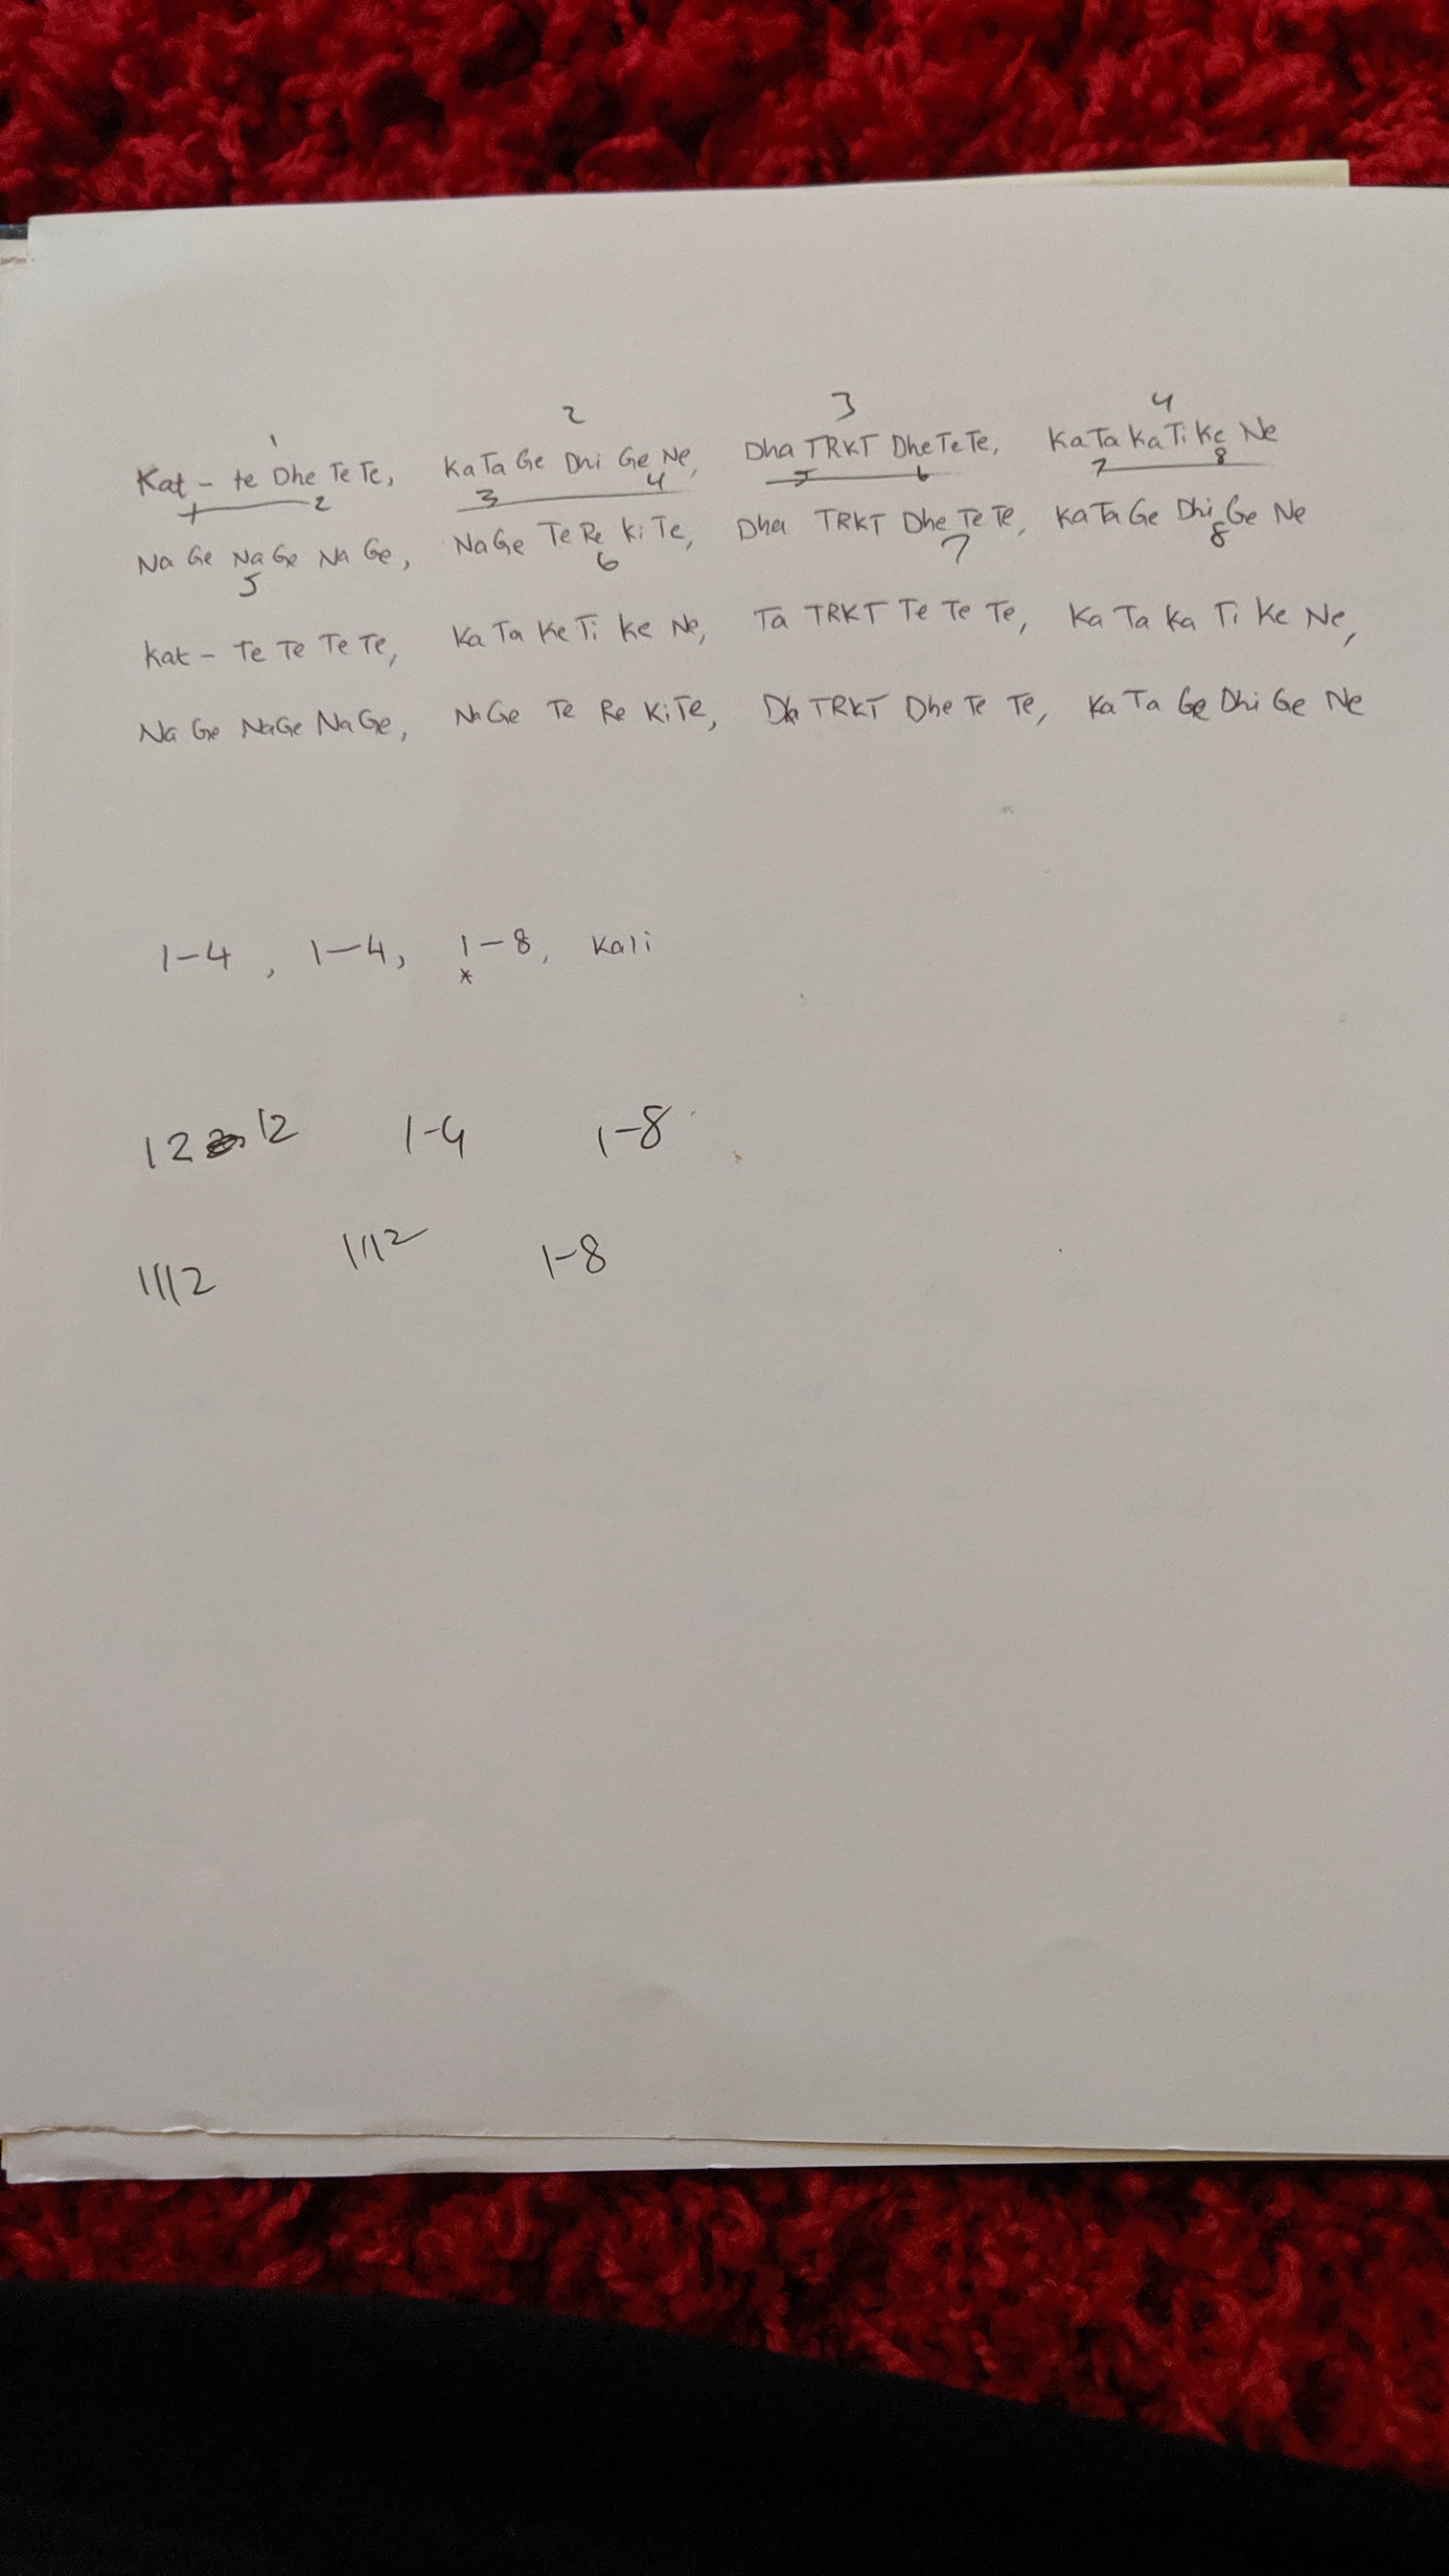 1 2 3 4
Kat - te Dhe Te Te, KaTa Ge Dhi Ge Ne, Dha TRKT Dhe Te Te, Ka Ta Ka Ti Ke Ne
1 2 3 4 5 6 7 8
Na Ge Na Ge Na Ge, Na Ge Te Re Ki Te, Dha TRKT Dhe Te Te, Ka Ta Ge Dhi Ge Ne
5 6 7 8
Kat - Te Te Te Te, Ka Ta Ke Ti Ke Ne, Ta TRKT Te Te Te, Ka Ta Ka Ti Ke Ne,
Na Ge Na Ge Na Ge, Na Ge Te Re Ki Te, Dha TRKT Dhe Te Te, Ka Ta Ge Dhi Ge Ne
1-4, 1-4, 1-8, Kali
*
12 12 1-4 1-8
1112 1112 1-8